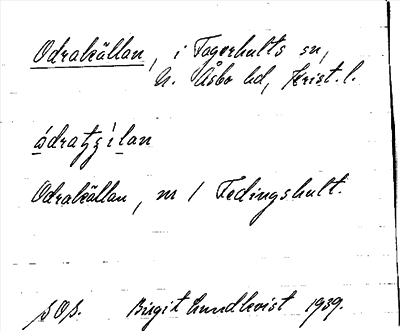 Odrakällan, i Fagerhults sn,
N. Åsbo hd, Krist. l.
ödratzịlan
Odrakällan, m / Fedingshult.
SOS. Birgit Lundkvist 1939.